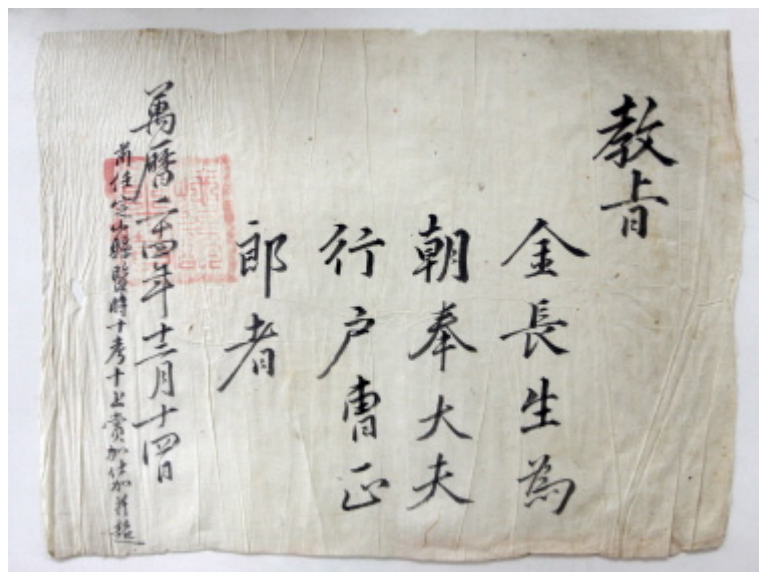 教旨
金長生為
朝奉大夫
行戶曹正
郎者
萬曆二十四年十二月十四日
前任定山縣監時十考十上賞加仕加